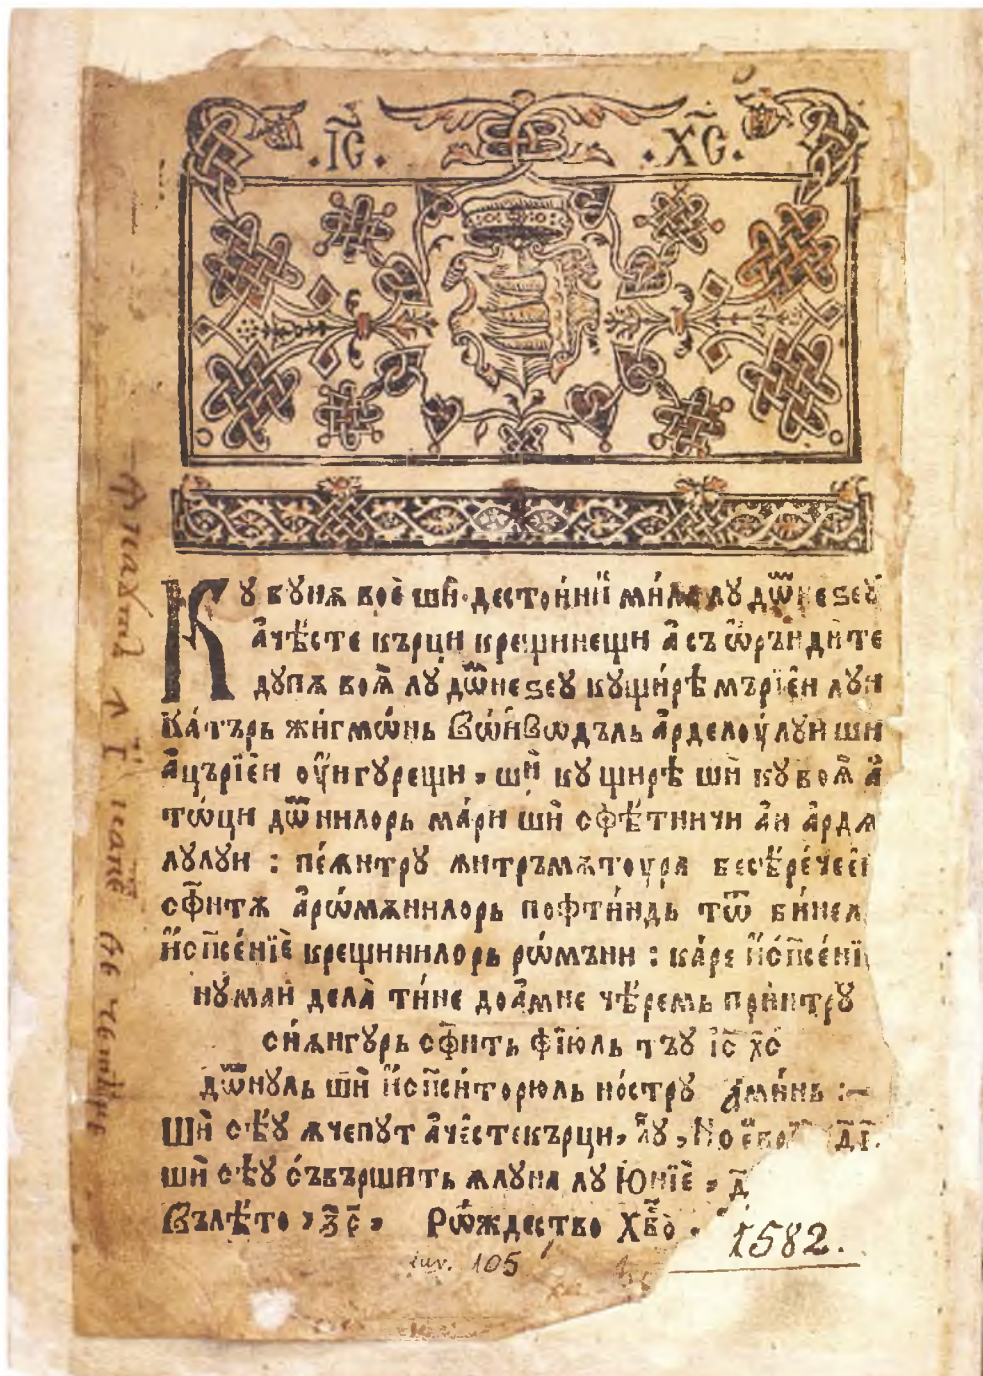 ·ІС҃· ·ХС҃·
Кꙋ бꙋнѫ воѐ шѝ дестои́нїи ми́ла лꙋ дѡ҃мнеꙃеꙋ
а҆че́сте кърци крещинещи а҆съ ѡ҆ръндите
дꙋпѫ воꙗ̀ лꙋ дѡ҃мнеꙃеꙋ кꙋщи́рѣ мърїе́и лꙋи
Ба́търь жигмѡ́нь вѡ́ивѡдъль а҆рделоу́лꙋи ши
а҆църїе́и оу҆нгꙋрещи, шѝ кꙋщирѣ шѝ кꙋ воꙗ̀ а҆
тѡ́ци дѡ҃мнилорь ма́ри шѝ сфѣтничи а҆и а҆рдѫ
лꙋлꙋи : пе́ѫнтрꙋ ѫнтръмѫтоура бесѣре́чеей
сфи҃тѫ а҆рѡ́мѫнилорь пофти́ндь тѡт би́неле
и҆сп҃се́нїе крещинилорь рѡ́мъни : ка́ре и҆сп҃се́нїе
нꙋмаи дела̀ ти́не доа́мне че́ремь при́нтрꙋ
си́ѫнгꙋрь сфи҃ть фїюль тъꙋ і҆с҃ х҃с
дѡ҃мнꙋль шѝ и҆сп҃си́торюль но́стрꙋ а҆ми́нь :~
Шѝ сѣꙋ ѫчепꙋт а҆че́сте кърци, лꙋ, Ноевріе д҃і.
шѝ сѣꙋ съвършить ѫлꙋна лꙋ Ю҆нїе, д҃
Вълѣто, ҂з҃ч҃, Рѡждество Хв҃о .
1582.
iuv. 105